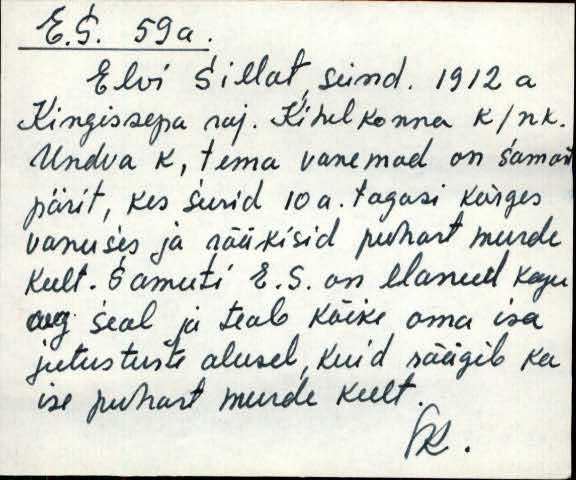 E.S. 59a.
Elvi Sillat, sünd. 1912 a
Kingissepa raj. Kihelkonna k/nk.
Undva k, tema vanemad on samas
pärit, kes surid 10 a. tagasi kõrges
vanuses ja rääkisid puhast murde
keelt. Samuti E.S. on elanud kogu
aeg seal ja teab kõike oma isa
jutustuste alusel, kuid räägib ka
ise puhast murde keelt.